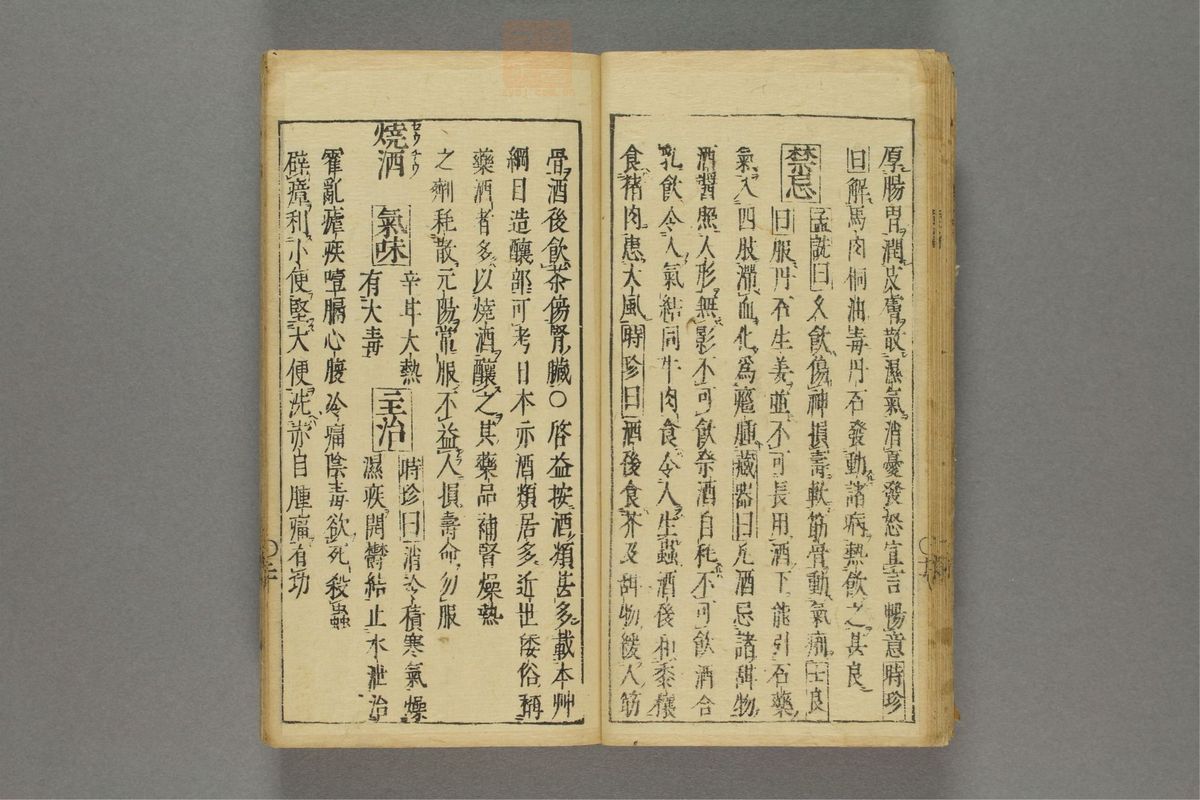 厚腸胃潤皮膚散濕氣消憂發怒宣言暢意時珍
曰解馬肉桐油毒丹石發動諸病熱飲之甚良
禁忌 孟詵曰久飲傷神損壽軟筋骨動氣痢士良
曰服丹石生姜並不可長用酒下能引石藥
氣入四肢滯血化爲癰腫藏器曰凡酒忌諸甜物
酒醤照人形無影不可飲祭酒自耗不可飲酒合
乳飲令人氣結同牛肉食令人生蟲酒後和黍穰
食猪肉患大風時珍曰酒後食芥及甜物緩人筋
骨酒後飲茶傷腎臓〇啓益按酒類甚多載本艸
綱目造釀部可考日本亦酒類居多近世倭俗稱
藥酒者多以燒酒釀之其藥品補腎燥熱
之劑耗散元陽常服不益人損壽命勿服
燒酒 セウチウ 氣味 辛甘大熱
有大毒 主治 時珍曰消冷積寒氣燥
濕疾開鬱結止水泄治
霍亂瘧疾噎膈心腹冷痛陰毒欲死殺蟲
辟瘴利小便堅大便洗赤目腫痛有功